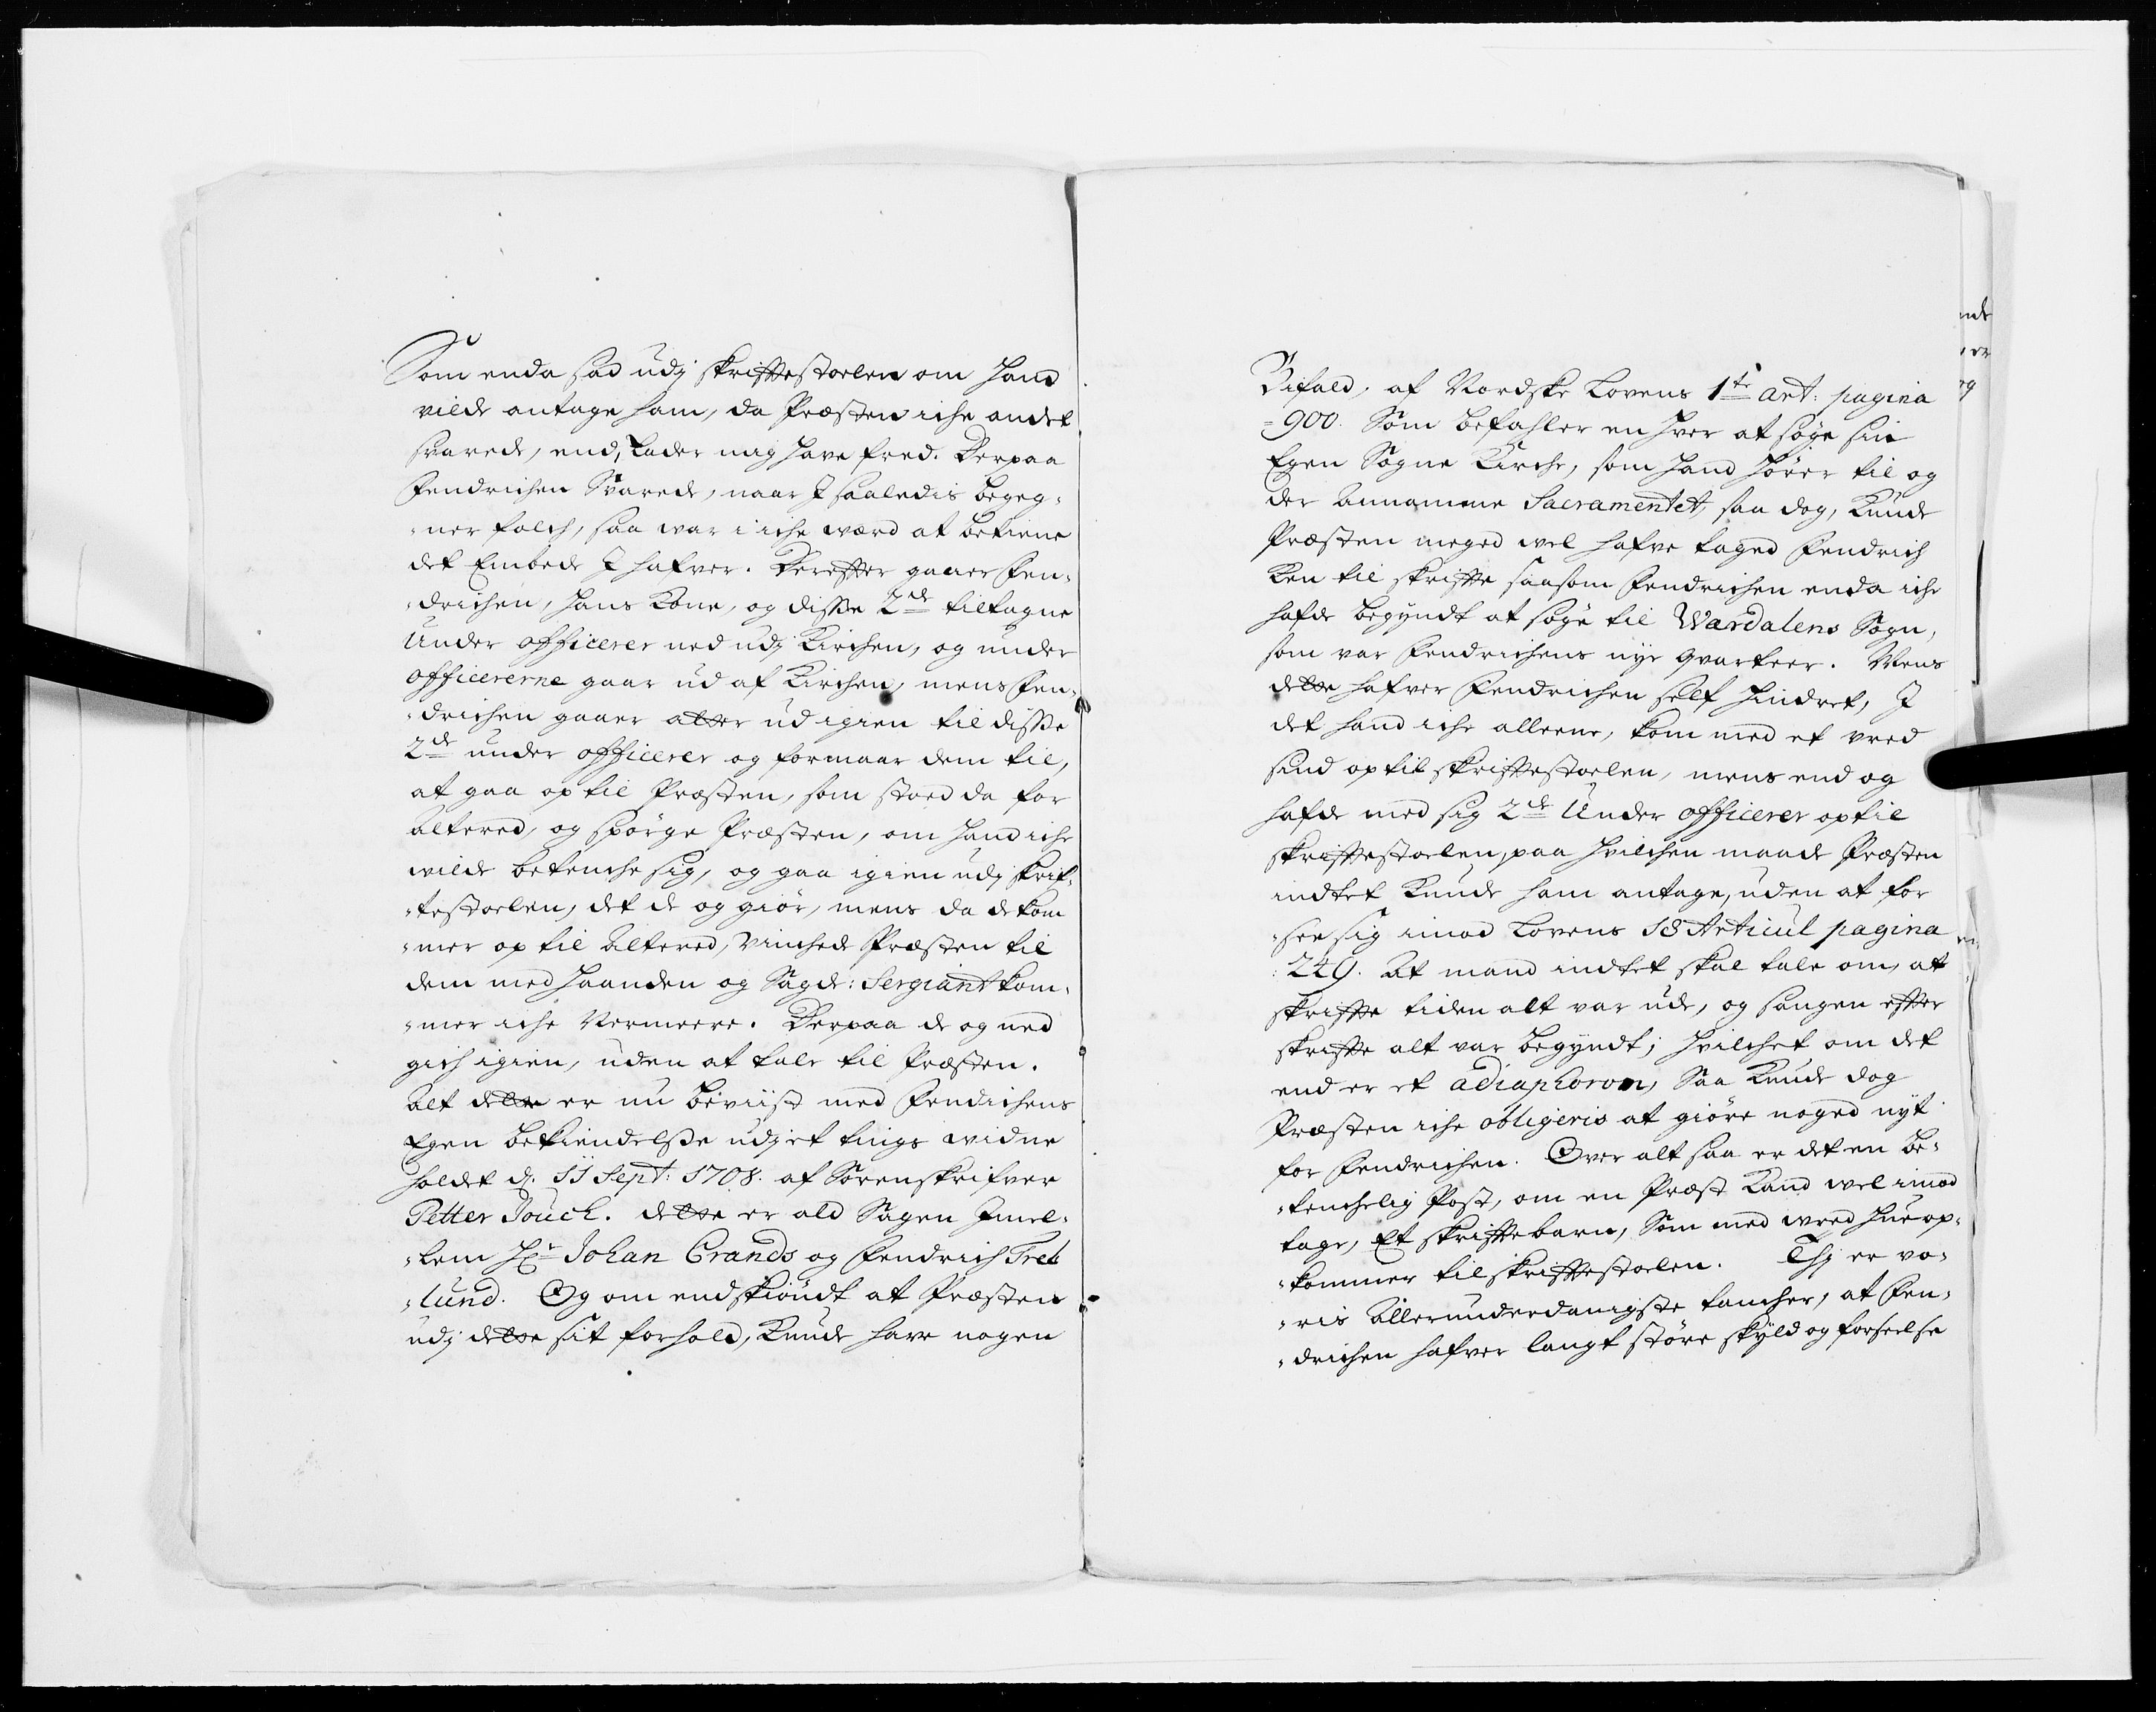 Som enda sad udj skriftestoelen om hand
vilde antage ham, da Præsten iche andet
svarede, end, Lader mig have fred. Derpaa
Fendrichen Svarede, naar I saaledis begeg-
-ner folch, saa war i iche værd at betiene
det Embede I hafver. Derefter gaaer Fen-
-drichen, hans Kone, og disse 2de tiltagne
Under officerer ned udj Kirchen, og under
officererne gaar ud af Kirchen, mens Fen-
-drichen gaaer atter ud igien til disse
2de under officerer og formaar dem til,
at gaa op til Præsten, som stoed da for
Altered, og spörge Præsten, om hand iche
wilde betenche sig, og gaa igien udj skrif-
-testoelen, det de og giör, mens da de kom
-mer op til Altered, Vinchede Præsten til
dem med haanden og Sagde: Sergiant kom-
-mer iche Nermeere. Derpaa de og ned
gich igien, uden at tale til Præsten.
Alt dette er nu beviist med Fendichens
Egen bekiendelsse udj et tings widne
holdet d. 11 Sept: 1708. af Sorenskrifver
Petter Jouch. dette er ald Sagen Imel-
-lem Hr Johan Crands og Fendrich Tret
-lund. Og om endskiöndt at Præsten
udj dette sit forhold, Kunde have nogen
Bifald, af Nordske Lovens 1te art: pagina
=900. Som befahler en hver at söge sin
Egen Sogne Kirche, som hand hörer til og
der Annamme Sacramentet, saa dog, Kunde
Præsten meged wel hafve taged Fendrich
Ken til skrifte saasom Fendrichen enda iche
hafde begyndt at söge til Wardalens Sogn,
som var Fendrichens nye qvarteer. Mens
dette hafver Fendrichen self hindret, I
det hand iche alleene, kom med et vred
sind op til skriftestoelen, mens end og
hafde med sig 2de Under officerer op til
skriftestoelen, paa hvilchen maade Præsten
indtet Kunde ham antage, uden at for
-see sig imod Lovens 18 Articul pagina
:249. At mand indtet skal tale om, at
skrifte tiden alt var ude, og sangen efter
skrifte alt var begyndt; hvilchet om det
end er et adiaphoron, Saa Kunde dog
Præsten iche obligeris at giöre noged nyt
for Fendrichen. Over alt saa er det en be-
-tenchelig Post, om en Præst Kand wel imod
tage, Et skriftebarn, Som med wred hue op-
-kommer til skriftestoelen. Thj er vo-
-ris Allerunderdanigste tancher, at Fen-
-drichen hafver langt störe skyld og forseelse